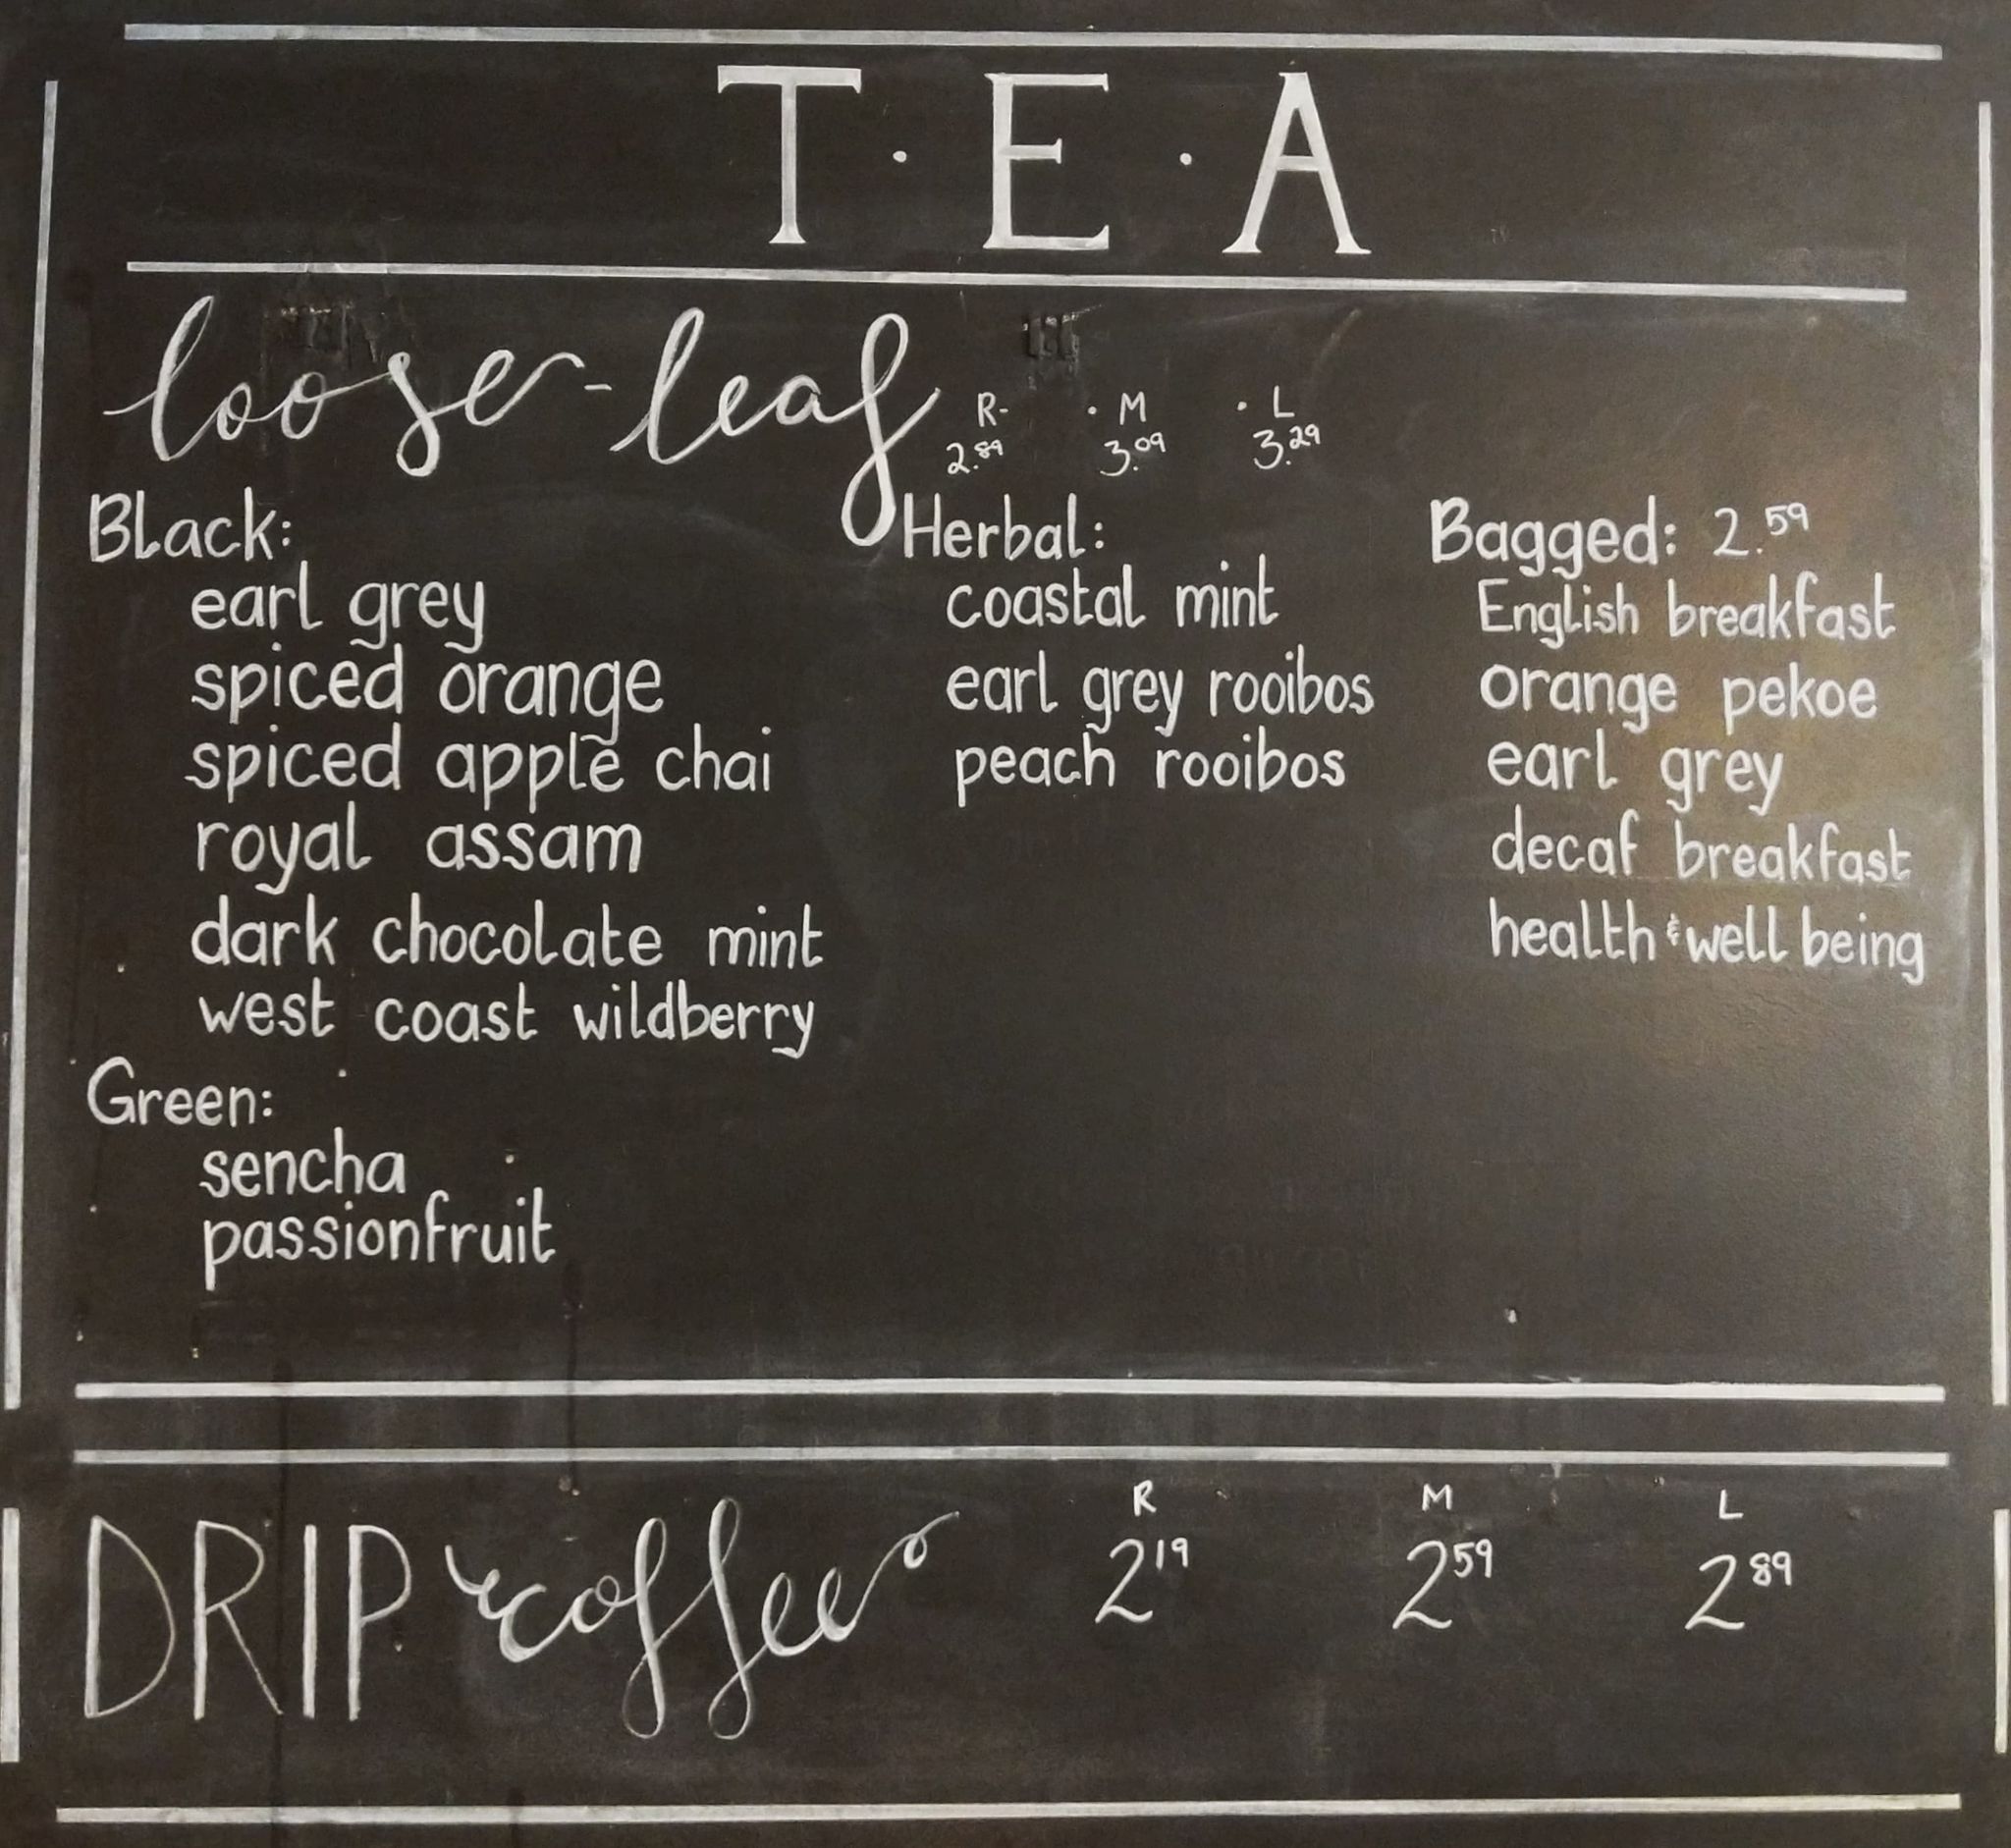 T·E·A
loose-leaf
R- · M · L
2.89 3.09 3.29
Black:
earl grey
spiced orange
spiced apple chai
royal assam
dark chocolate mint
west coast wildberry
Green:
sencha
passionfruit
Herbal:
coastal mint
earl grey rooibos
peach rooibos
Bagged: 2.59
English breakfast
orange pekoe
earl grey
decaf breakfast
health & well being
DRIP coffee
R M L
2 19 2 59 2 89